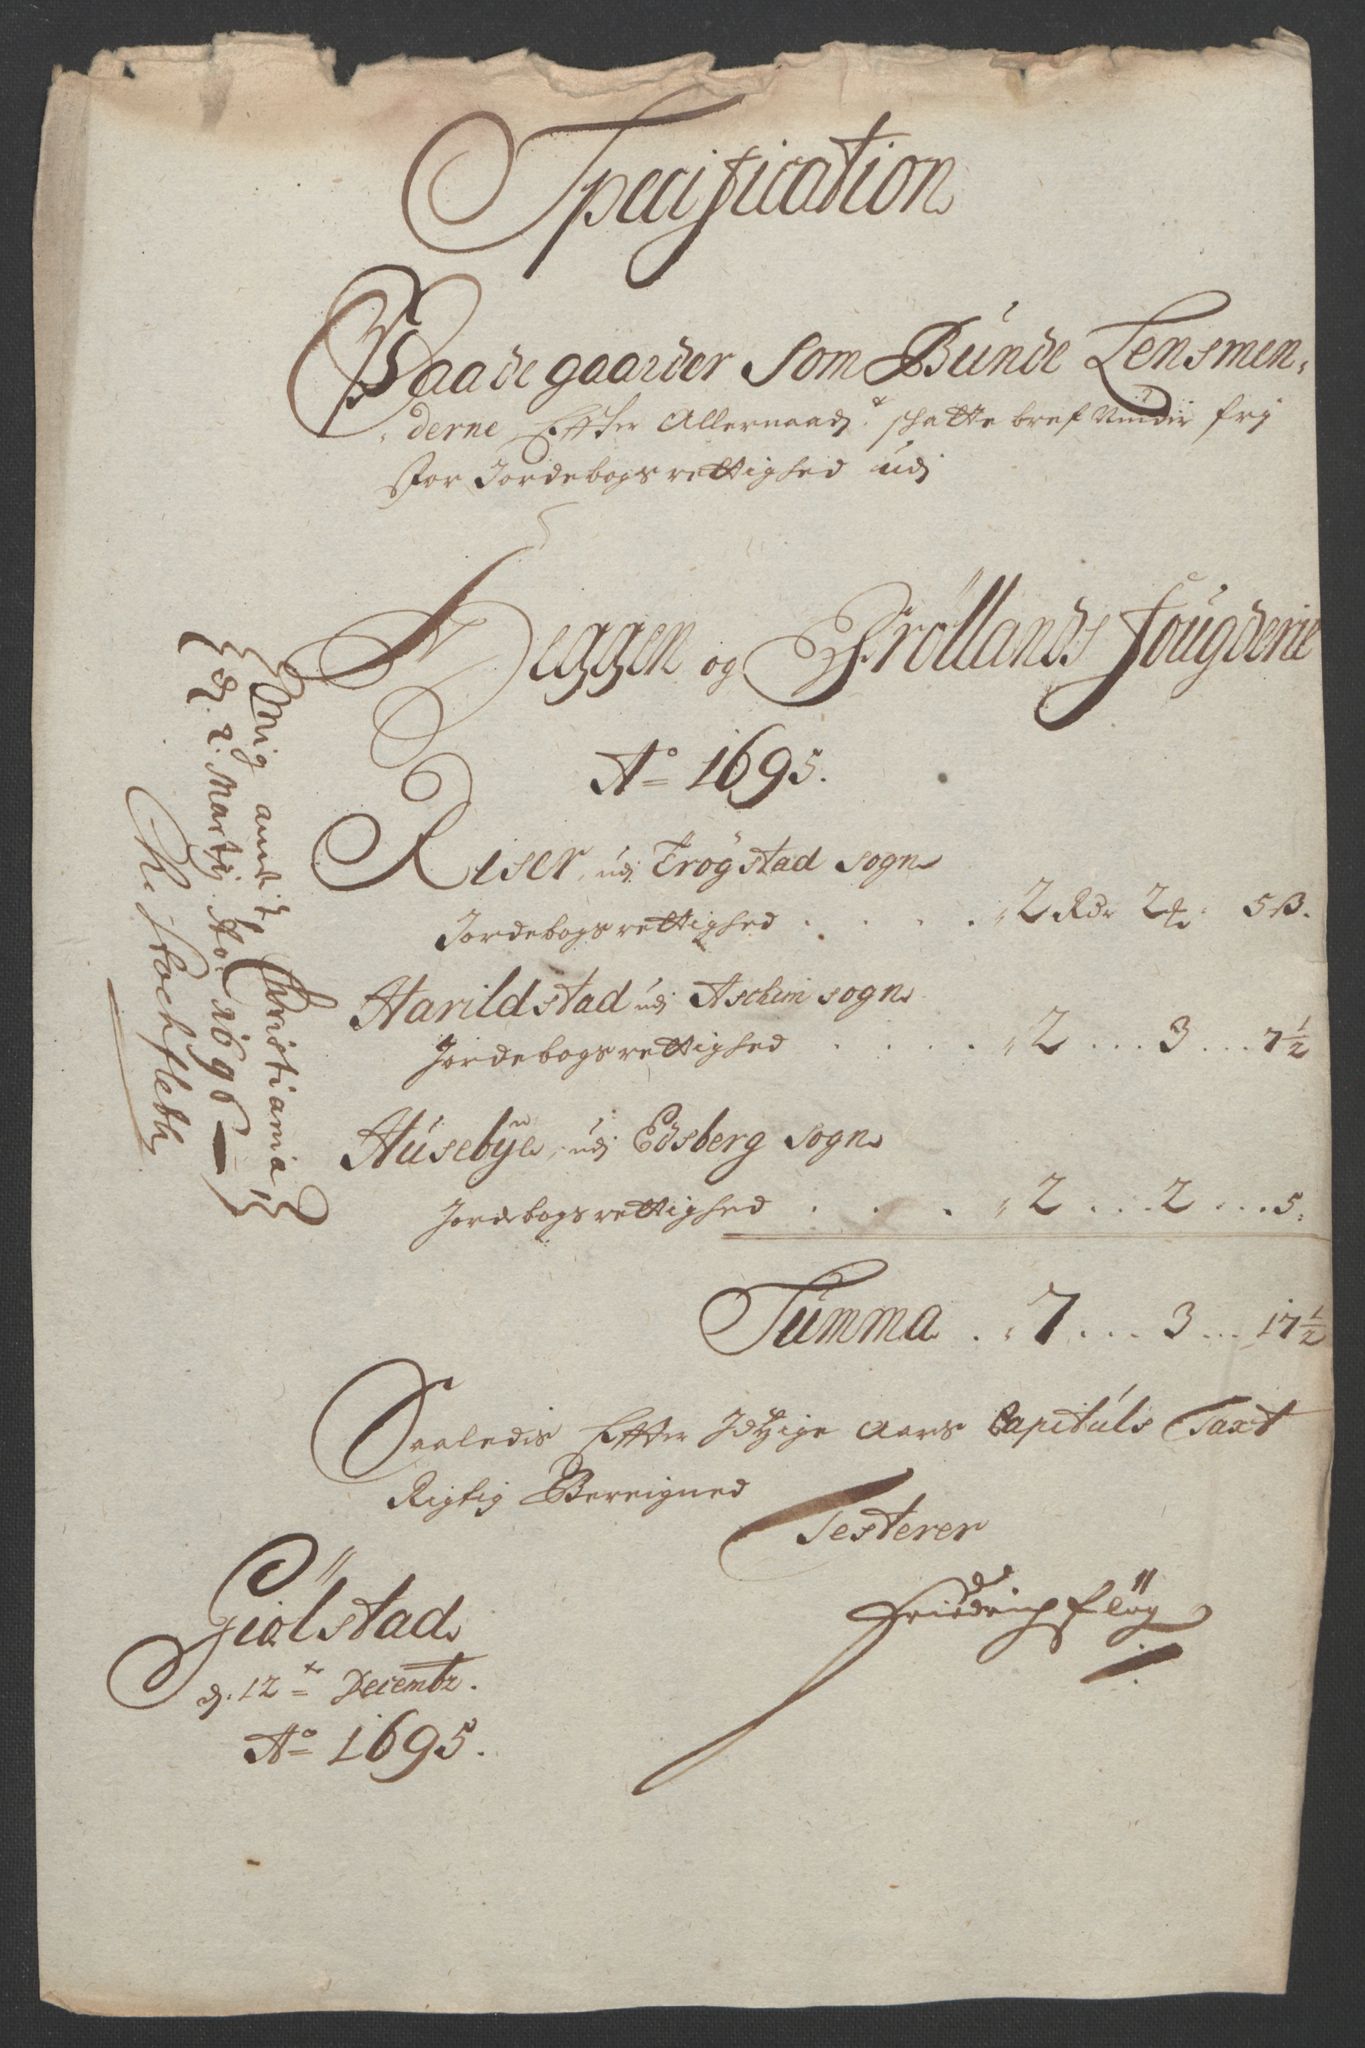 Specification
Paa de gaarder som Bünde Lensmen,
derne Effter Allernaad:ᵗ schatte bref Niüder fri
for Jordebogs rettighed udj
Heggen og Frøllands fougderie
Ao 1695.
Riser, udj Trøgstad sogn
Jordebogs rettighed . . . . 2 Rdr 2 5 ß.
Harildstad udj Aschim sogn
Jordebogs rettighed . . . . 2 . . . 3 . . . 7½
Hüsebye, udj Edsberg sogn
Jordebogs rettighed . . . 2 . . . 2 . . . 5
Summa . 7 . . . 3 . . . 17½
Saaledis Effter Jdtzige Aars Capitüls Taxt
Rigtig Bereigned
Testerer
Friedrich Fløg
Giølstad
d. 12te Decembr.
Ao 1695.
Christiania
d. 2. Martj. Ao. 1696
H. Stockfleth